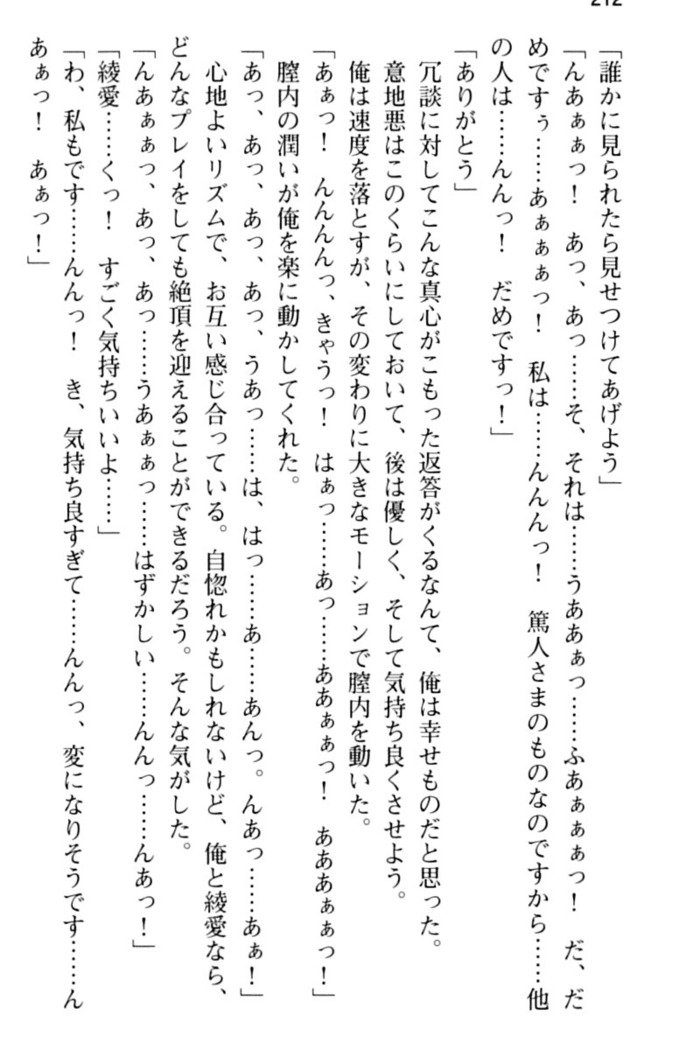 212
「誰かに見られたら見せつけてあげよう」
「んあぁぁっ！　あっ、あっ……そ、それは……うああぁっ……ふあぁぁぁっ！　だ、だ
めですぅ……あぁぁぁっ！　私は……んんんっ！　篤人さまのものなのですから……他
の人は……んんっ！　だめですっ！」
「ありがとう」
　冗談に対してこんな真心がこもった返答がくるなんて、俺は幸せものだと思った。
　意地悪はこのくらいにしておいて、後は優しく、そして気持ち良くさせよう。
　俺は速度を落とすが、その変わりに大きなモーションで膣内を動いた。
「あぁっ！　んんんんっ、きゃうっ！　はぁっ……あっ……ああぁぁっ！　あああぁぁっ！」
　膣内の潤いが俺を楽に動かしてくれた。
「あっ、あっ、あっ、あっ、うあっ……は、はっ……あ……あんっ。んあっ……あぁ！」
　心地よいリズムで、お互い感じ合っている。自惚れかもしれないけど、俺と綾愛なら、
どんなプレイをしても絶頂を迎えることができるだろう。そんな気がした。
「んあぁぁっ、あっ、あっ……うあぁぁっ……はずかしい……んんっ……んあっ！」
「綾愛……くっ！　すごく気持ちいいよ……」
「わ、私もです……んんっ！　き、気持ち良すぎて……んんっ、変になりそうです……ん
あぁっ！　あぁっ！」